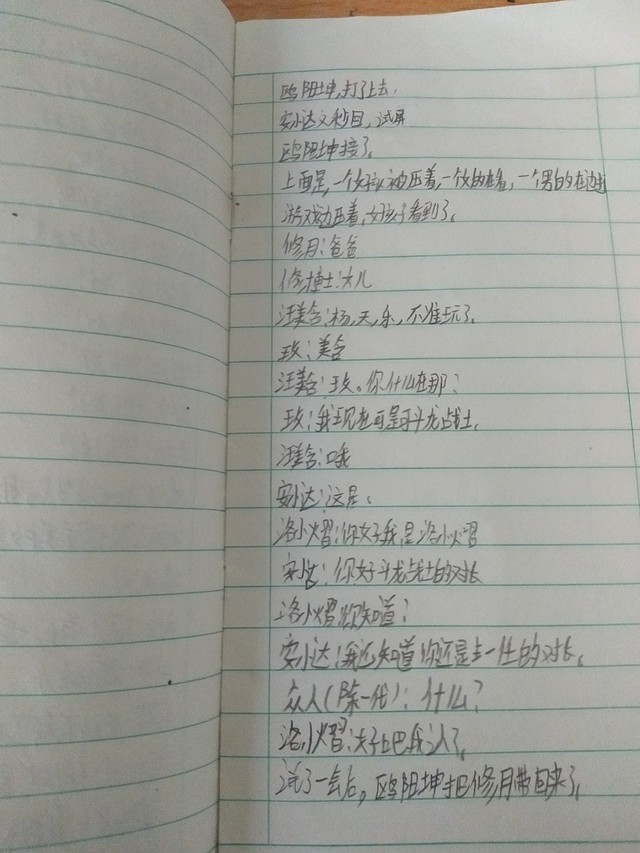 欧阳坤,打了上去,
安小达文秒目,试屏
欧阳坤接了。
上面是,一个女孩被压着,一女的在看,一个男的在边
游戏动压着,女孩子看到了。
修月:爸爸
修博士:女儿
汪美含:杨,天,乐,不准玩了。
玫:美含
汪美含:玫。你什么在那?
玫:我现在可是斗龙战士。
汪美含:哦
安小达:这是。
洛小熠:你好我是洛小熠
安小达:你好斗龙战士的对长
洛小熠:你知道?
安小达:我还知道你还是上一任的对长。
众人(除一代):什么?
洛小熠:夫子上巴我认了。
说了一会后,欧阳坤把修月带回来了。